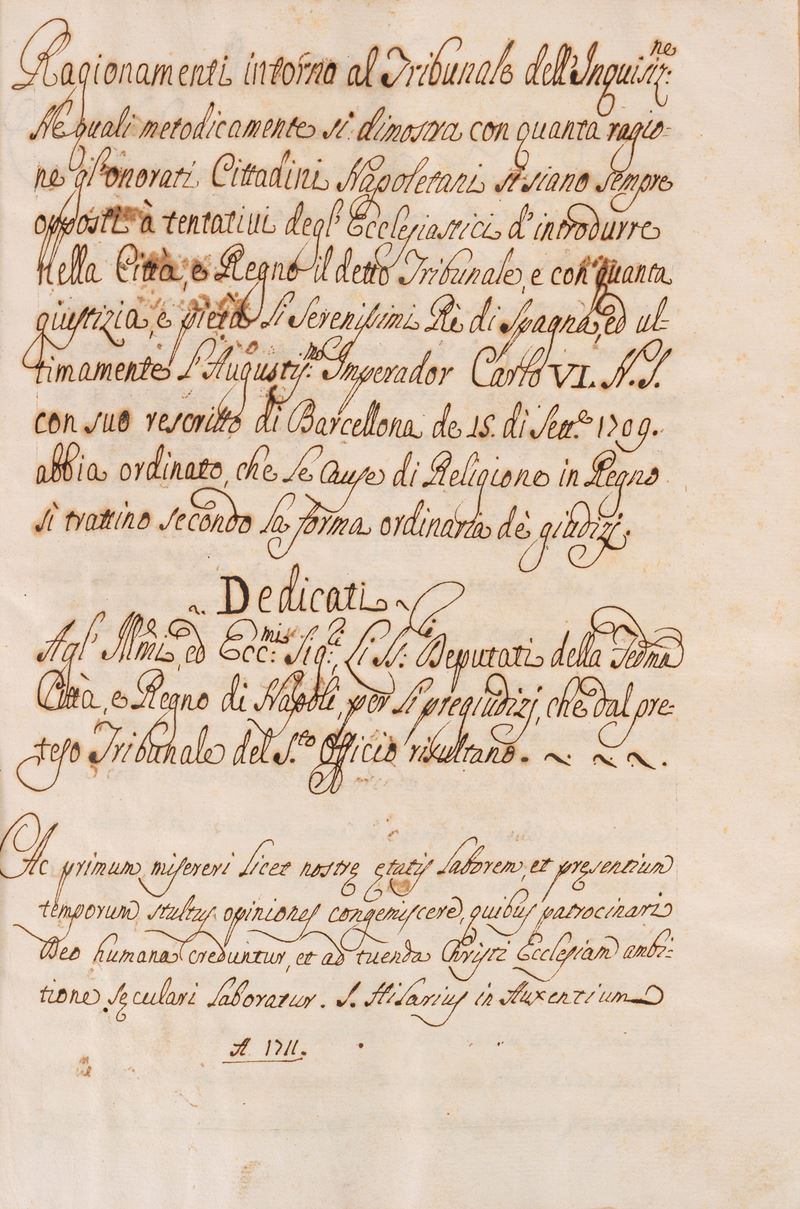 Ragionamenti intorno al Tribunale dell'Inquisiz:ne
Ne quali metodicamente si dimostra con quanta ragio-
ne gl'onorati Cittadini Napoletani si siano sempre
opposti à tentativi degl'Ecclesiastici d'introdurre
nella Città, e Regno il detto Tribunale, e con quanta
giustizia, e pietà li Serenissimi Rè di Spagna, ed ul-
timamente l'Augustiss:mo Imperador Carlo VI. N.S.
con suo rescritto di Barcellona de 15. di Sett.e 1709.
abbia ordinato, che le cause di Religione in Regno
si trattino secondo la forma ordinaria dè giudizj.
Dedicati
Agl'Illmi, ed Ecc:mi Sig:ri, li SS:ri Deputati della Fedma
Città, e Regno di Napoli, per li pregiudizj, che dal pre-
teso Tribunale del S.to Officio risultano.
Ac primum misereri licet nostrę ętatis laborem, et pręsentium
temporum stultas opiniones congemiscere, quibus patrocinari
Deo humana creduntur, et ad tuenda Christi Ecclesiam ambi-
tione sęculari laboratur. S. Hilarius in Auxentium
A 1711.